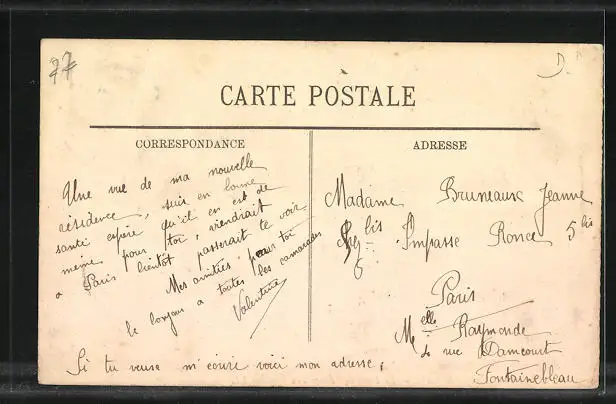 77
D.
CARTE POSTALE
CORRESPONDANCE
Une vue de ma nouvelle
résidence, suis en bonne
santé espère qu'il en est de
même pour toi, viendrait
a Paris bientôt passerait te voir
Mes amitiés pour toi
le bonjour a toutes les camarades
Valentine
Si tu veuse m'écrire voici mon adresse:
ADRESSE
Madame Bruneaux Jeanne
bis Impasse Ronce 5 bis
6
Paris
Melle Raymonde
rue Damcourt
Fontainebleau